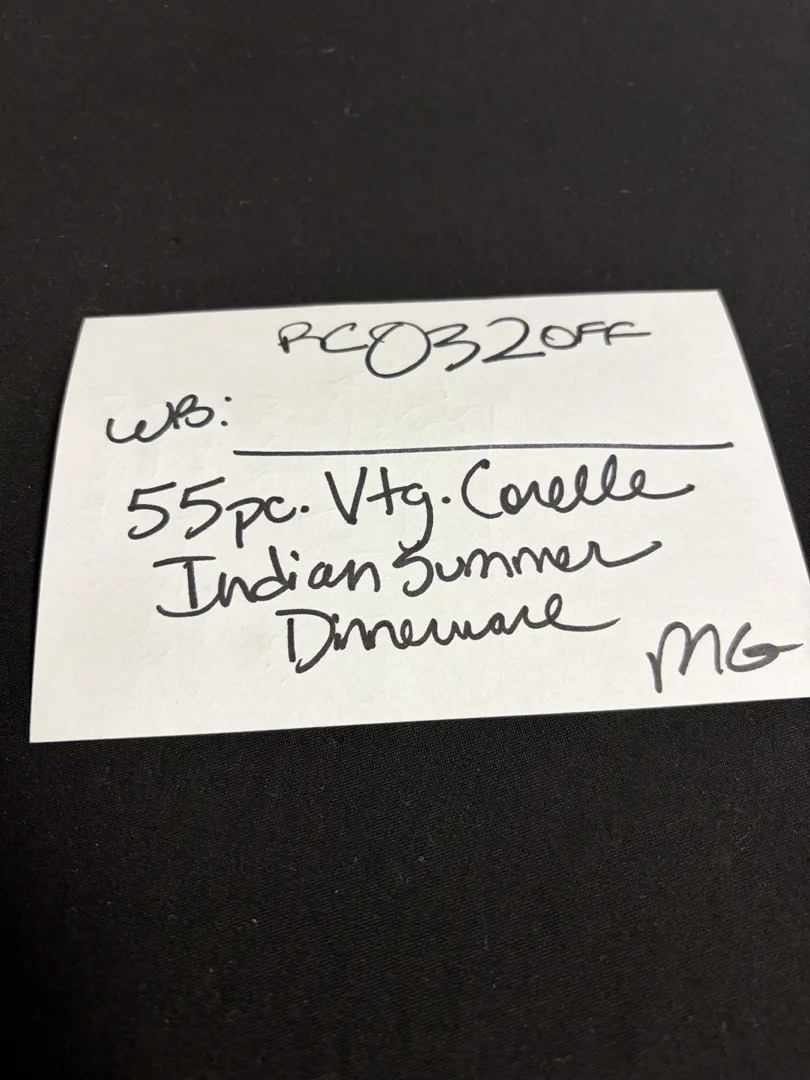 RC0320FF
WB:
55pc. Vtg. Corelle
Indian Summer
Dinnerware
MG